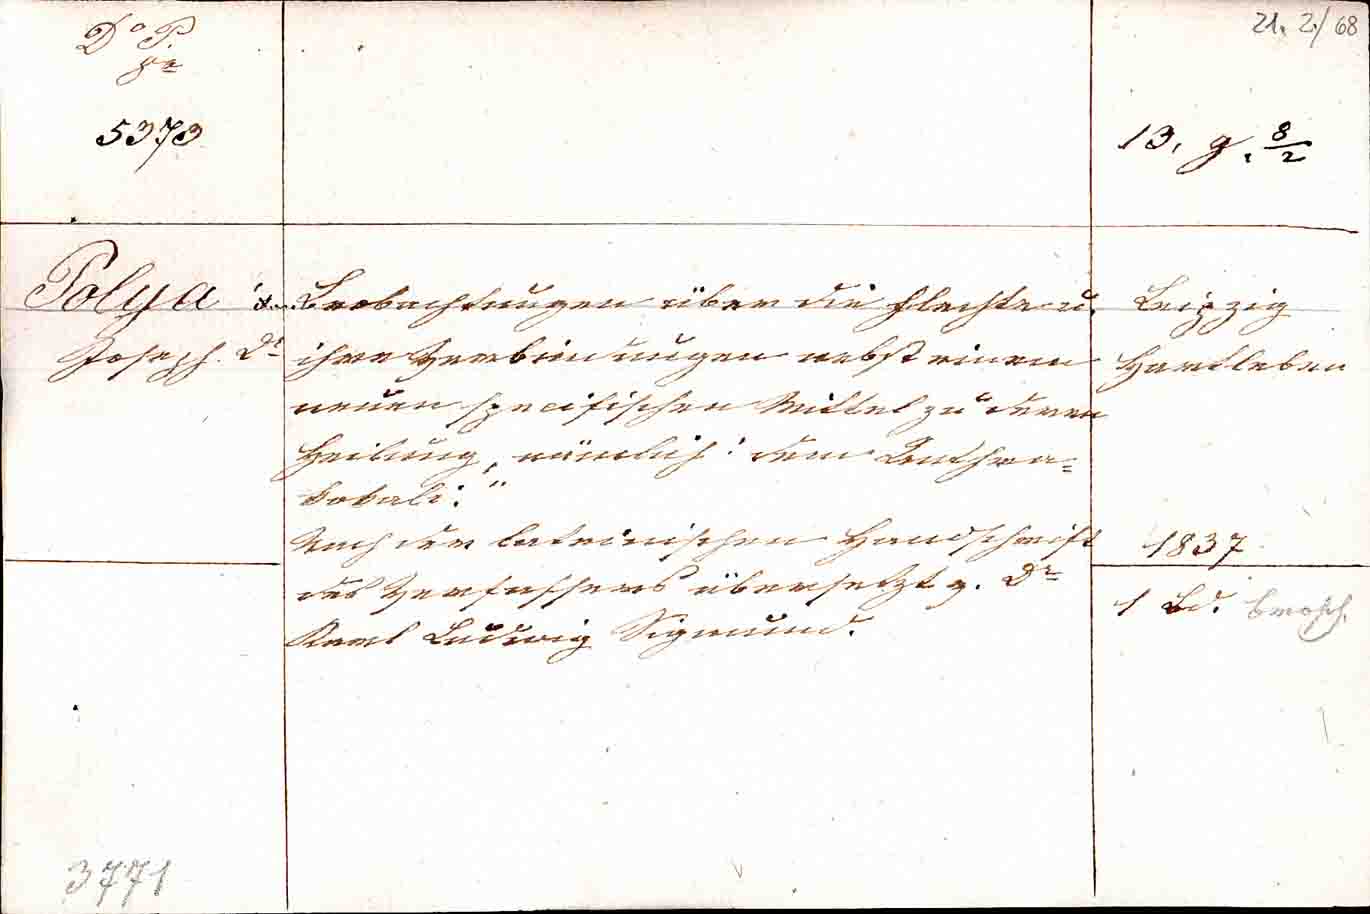 21. 2./68
D° P.
5373
13. g. 8/2
Polya
Joseph Dr
Beobachtungen über die Flechte u.
ihre Verbindungen nebst einem
neuen specifischen Mittel zu deren
Heilung, nämlich: dem Anthra=
kokali."
Nach der lateinischen Handschrift
des Verfassers übersetzt v. Dr
Karl Ludwig Sigmund.
Leipzig
Hartleben
1837
1 Bd. brosch.
3771